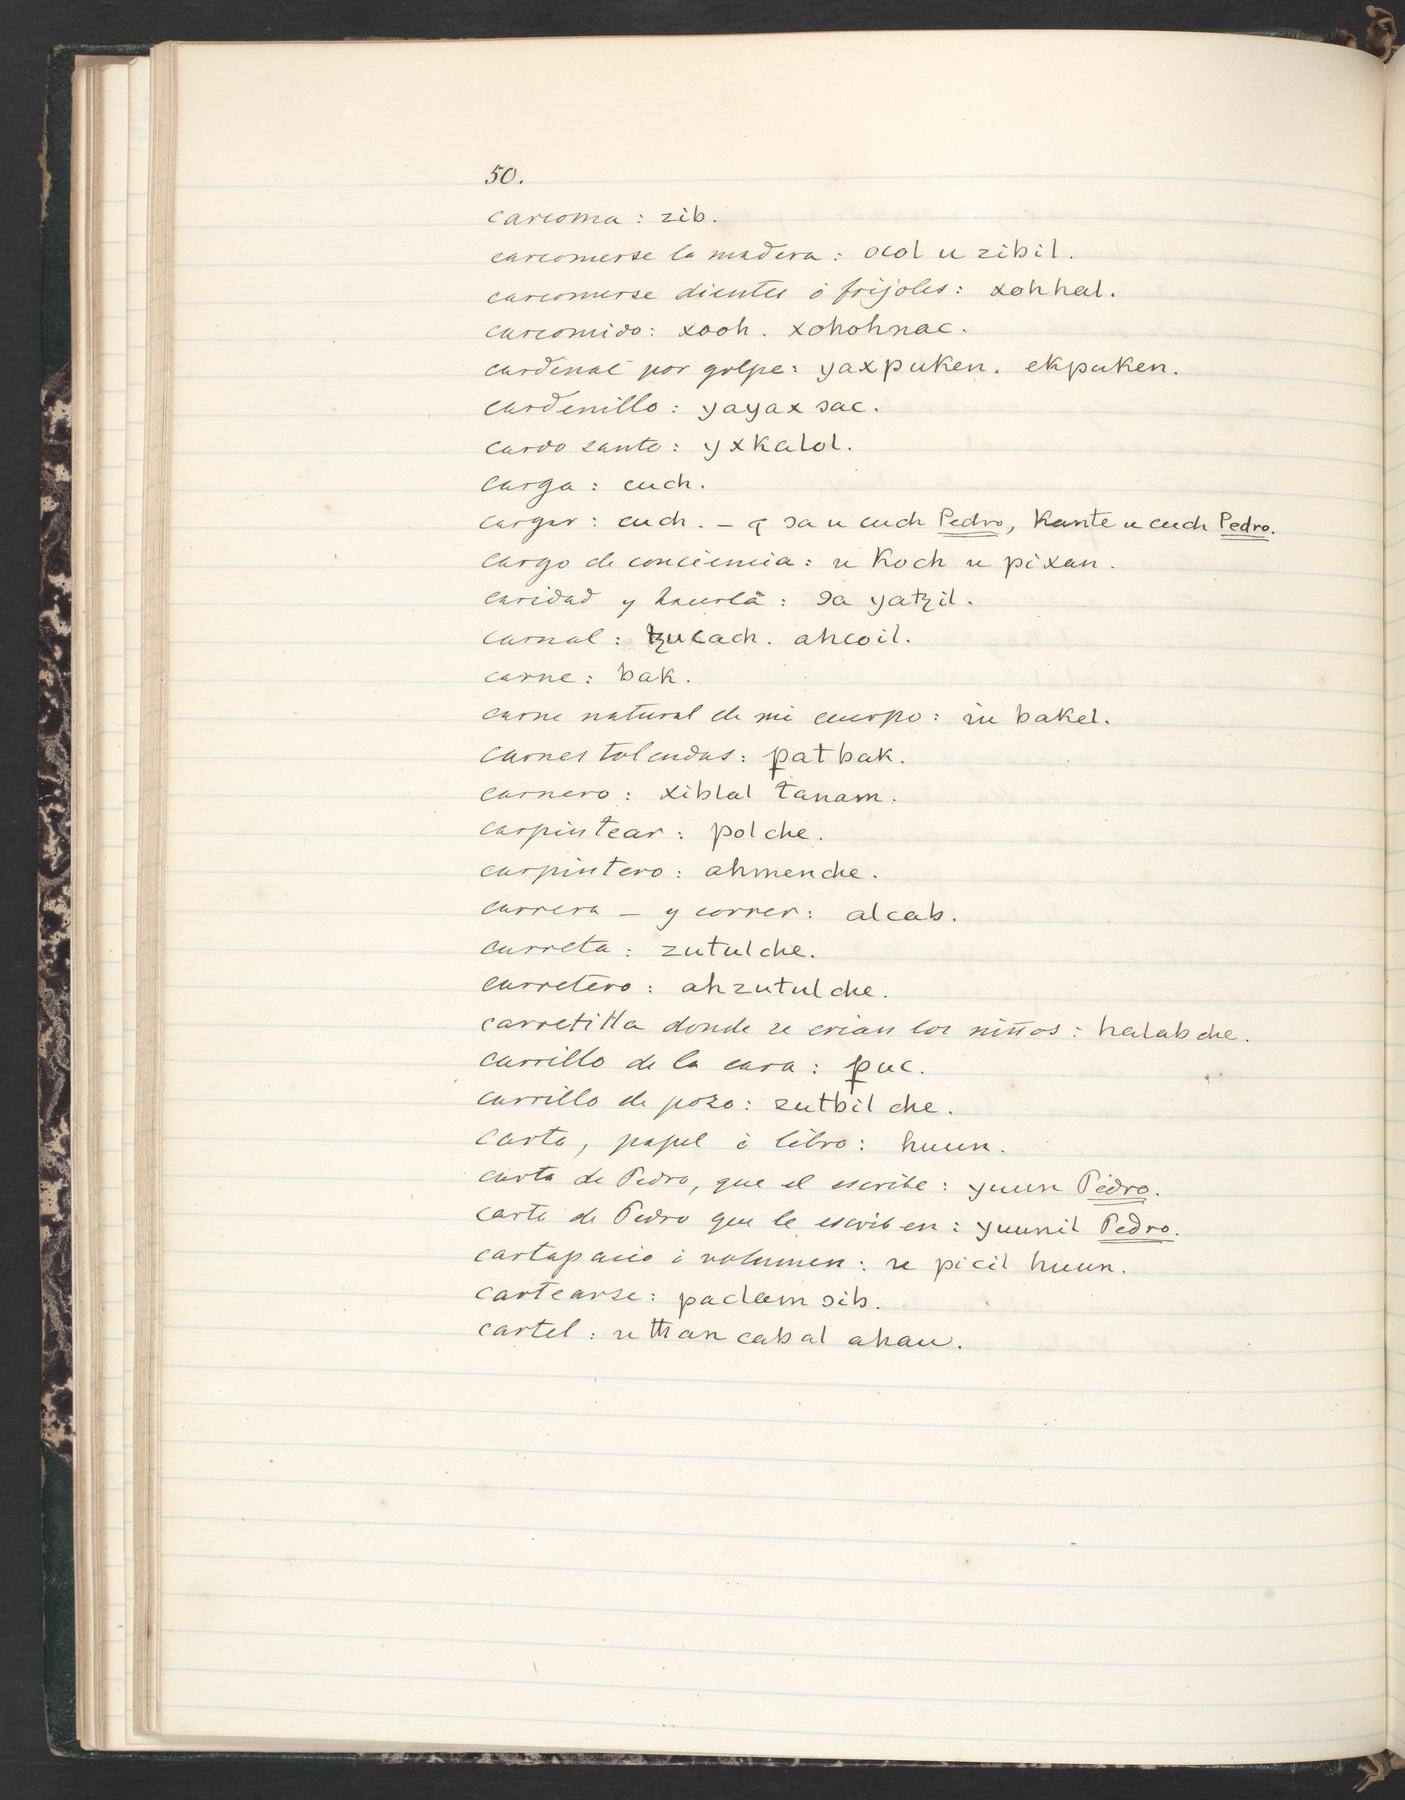 50.
carcoma : zib.
carcomerse la madera : ocol u zibil.
carcomerse dientes ó frijoles : xohhal.
carcomido : xooh. xohohnac.
cardenal por golpe : yaxpuken. ekpuken.
cardenillo : yayax ɔac.
cardo santo : yxkalol.
carga : cuch.
cargar : cuch. – ɔa u cuch Pedro, Kante u cuch Pedro.
cargo de conciencia : u Koch u pixan.
caridad y hacerla : ɔa yatzil.
carnal : tzucach. ahcoil.
carne : bak.
carne natural de mi cuerpo : in bakel.
carnes tolendas : ꝑat bak.
carnero : xiblal tanam.
carpintear : polche.
carpintero : ahmenche.
carrera – y correr : alcab.
carreta : zutulche.
carretero : ah zutulche.
carretilla donde se crian los niños : halabche.
carrillo de la cara : ꝑuc.
carrillo de pozo : zutbil che.
carta, papel ó libro : huun.
carta de Pedro, que el escribe : yuun Pedro.
carta de Pedro que le escriben : yuunil Pedro.
cartapacio ó volumen : u picil huun.
cartearse : paclam ɔib.
cartel : u tħan cabal ahau.